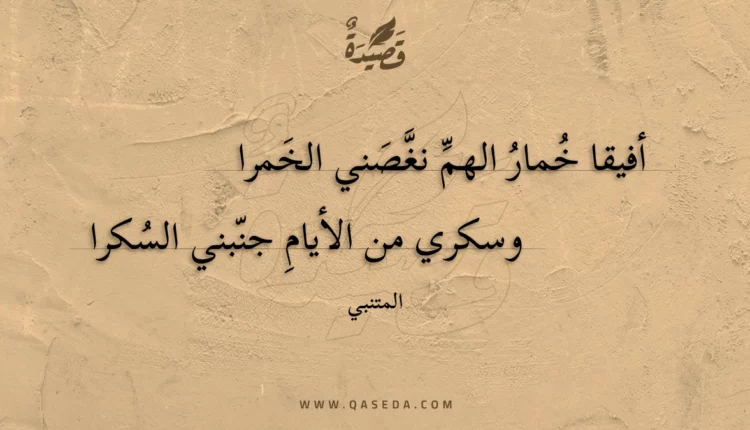 قَصِيدَةٌ
أفيقا خُمارُ الهمِّ نغَّصَني الخَمرا
وسكري من الأيامِ جنّبني السُكرا
المتنبي
WWW.QASEDA.COM